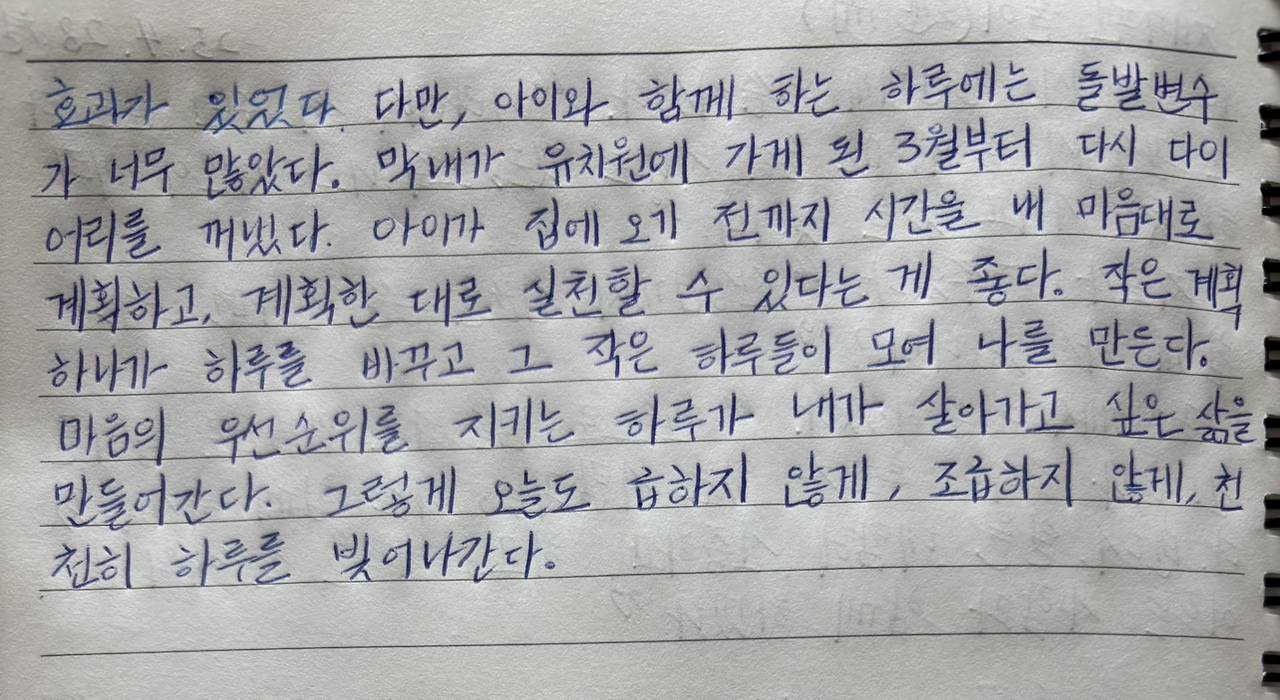 효과가 있었다. 다만, 아이와 함께 하는 하루에는 돌발변수
가 너무 많았다. 막내가 유치원에 가게 된 3월부터 다시 다이
어리를 꺼냈다. 아이가 집에 오기 전까지 시간을 내 마음대로
계획하고, 계획한 대로 실천할 수 있다는 게 좋다. 작은 계획
하나가 하루를 바꾸고 그 작은 하루들이 모여 나를 만든다.
마음의 우선순위를 지키는 하루가 내가 살아가고 싶은 삶을
만들어간다. 그렇게 오늘도 급하지 않게, 조급하지 않게, 천
천히 하루를 빚어나간다.